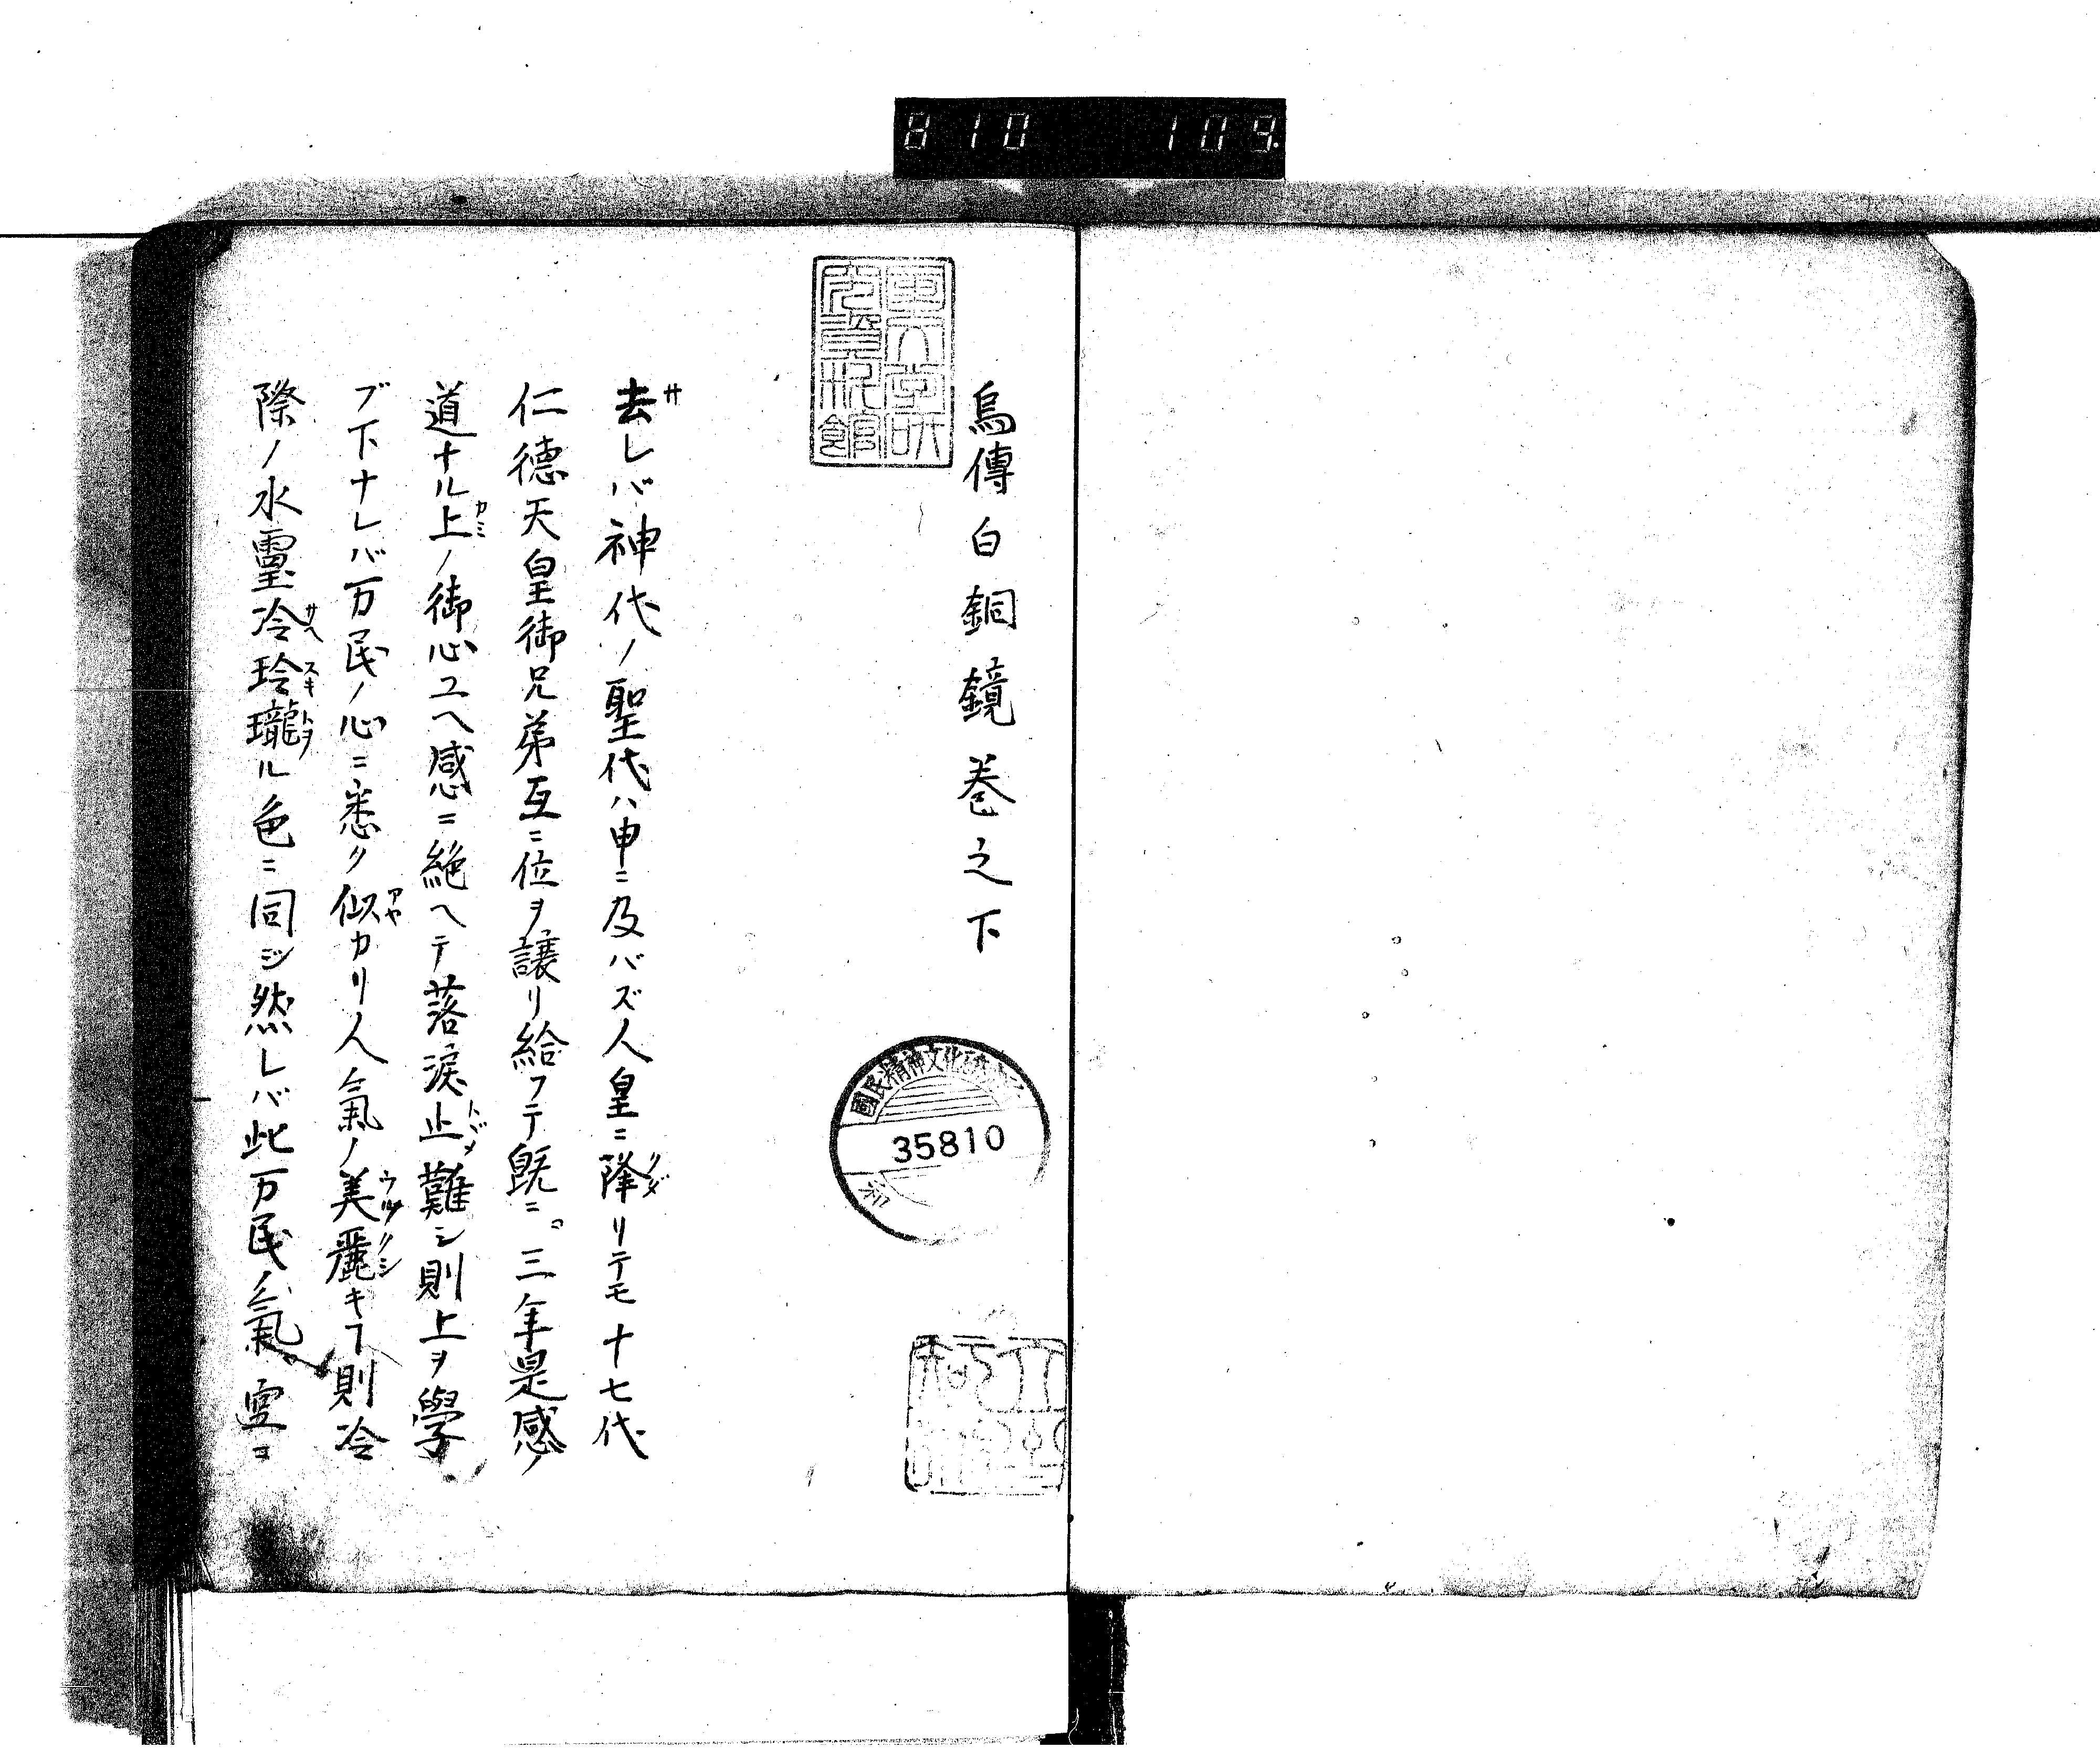 810 109.
烏傳白銅鏡巻之下
35810
去レバ神代ノ聖代ハ申ニ及バズ人皇ニ降リテモ十七代
仁徳天皇御兄弟互ニ位ヲ譲リ給フテ既ニ三年是感
道ナル上ノ御心ユヘ感ニ絶ヘテ落涙止難シ則上ヲ學
ブ下ナレバ万民ノ心ニ悉ク似カリ人氣ノ美麗キヿ則冷
際ノ水靈冷玲瓏ル色ニ同ジ然レバ此万民ノ氣